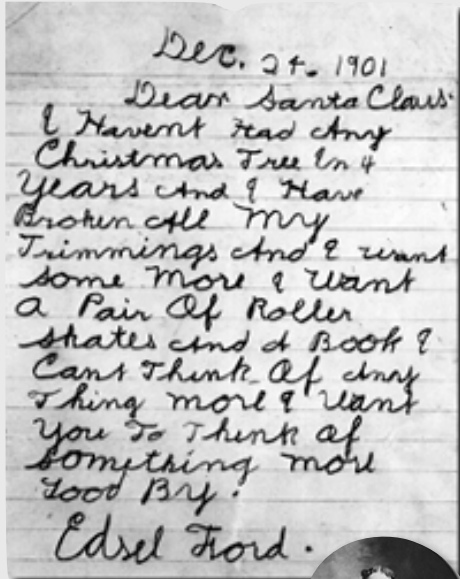 Dec. 24. 1901
Dear Santa Claus:
I Havent Had Any
Christmas Tree In 4
Years And I Have
Broken All My
Trimmings And I want
some More I Want
A Pair Of Roller
skates And A Book I
Cant Think Of Any
Thing more I Want
You To Think Of
something more
Good By.
Edsel Ford.